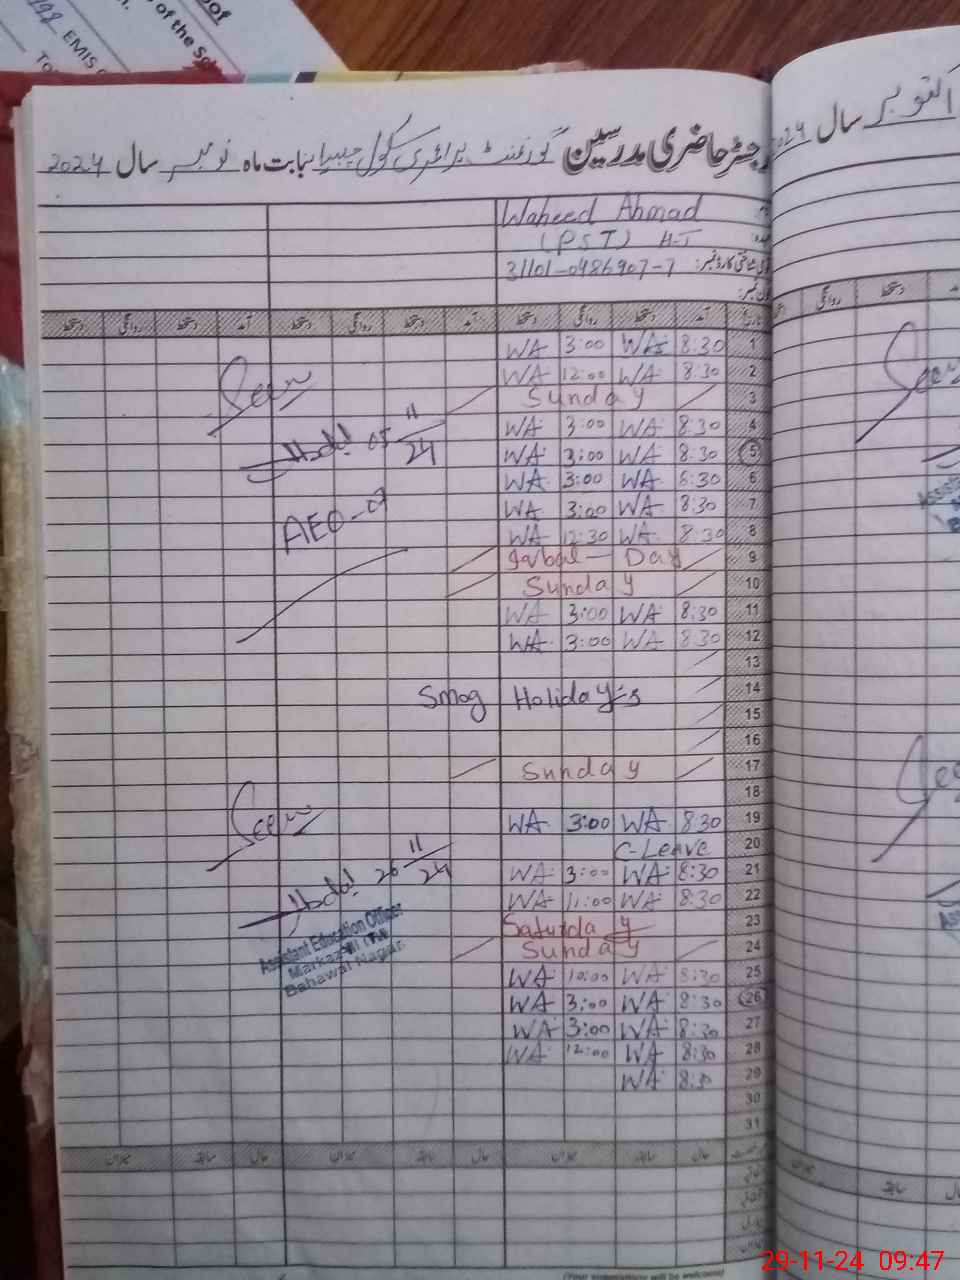 of the Sch
EMIS
رجسٹر حاضری مدرسین گورنمنٹ پرائمری سکول بابت ماہ نومبر سال 2024
اکتوبر سال 2024
Waheed Ahmad
(PST) H-T
31101-0486907-7
WA 3:00 WA 8:30 1
WA 12:00 WA 8:30 2
Sunday 3
WA 3:00 WA 8:30 4
WA 3:00 WA 8:30 5
WA 3:00 WA 8:30 6
WA 3:00 WA 8:30 7
WA 12:30 WA 8:30 8
Iqbal — Day 9
Sunday 10
WA 3:00 WA 8:30 11
WA 3:00 WA 8:30 12
13
Smog Holiday's 14
15
16
Sunday 17
18
WA 3:00 WA 8:30 19
C-Leave 20
WA 3:00 WA 8:30 21
WA 11:00 WA 8:30 22
Saturday 23
Sunday 24
WA 10:00 WA 8:30 25
WA 3:00 WA 8:30 26
WA 3:00 WA 8:30 27
WA 12:00 WA 8:30 28
WA 8:30 29
30
31
Seen
05 11/24
AEO-
Seen
26 11/24
Assistant Education Officer
Markaz
Bahawal Nagar
29-11-24 09:47